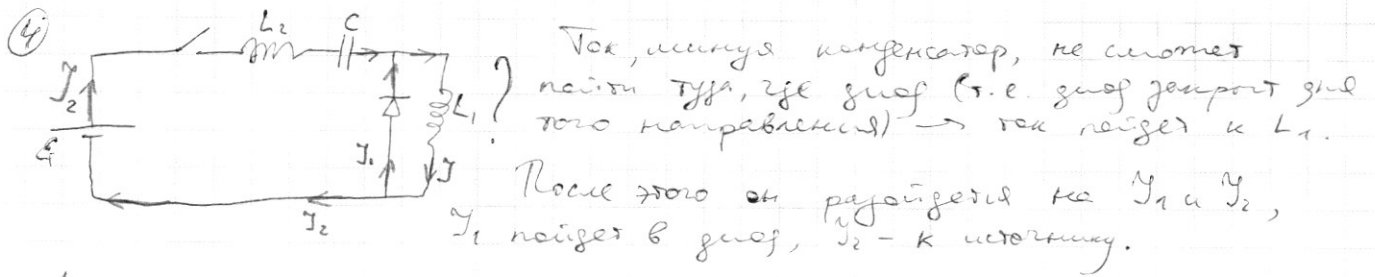 4
L₂ C
Ток, минуя конденсатор, не сможет
J₂ L₁ ? пойти туда, где диод (т.е. диод закрыт для
ℰ J₁ J того направления) → ток пойдет к L₁.
После этого он разойдется на J₁ и J₂,
J₂ J₁ пойдет в диод, J₂ - к источнику.